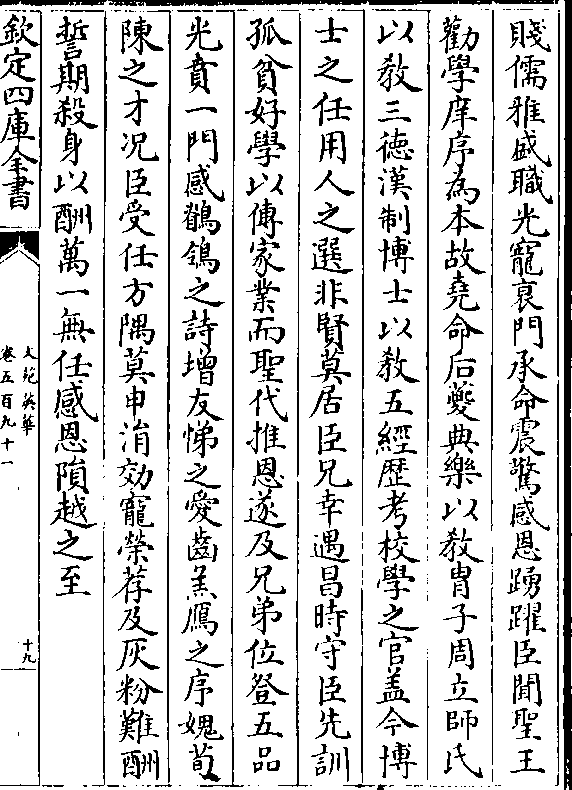 賤儒雅盛職光寵衰門承命震驚感恩踴躍臣聞聖王
勸學庠序為本故堯命后夔典樂以教胄子周立師氏
以教三徳漢制博士以教五經歴考校學之官盖今博
士之任用人之選非賢莫居臣兄幸遇昌時守臣先訓
孤貧好學以傳家業而聖代推恩遂及兄弟位登五品
光賁一門感鶺鴒之詩增友悌之愛齒羔鴈之序媿荀
陳之才况臣受任方隅莫申涓効寵榮荐及灰粉難酬
誓期殺身以酬萬一無任感恩隕越之至
欽定四庫全書
文苑英華
卷五百九十一
十九